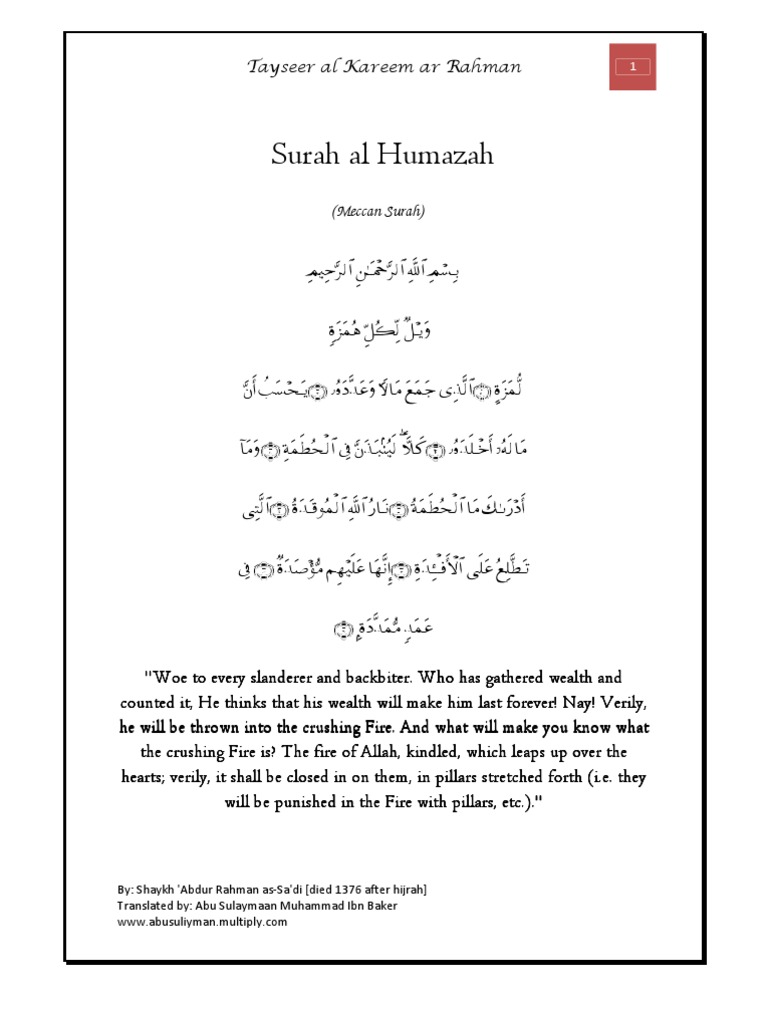 Tayseer al Kareem ar Rahman
1
Surah al Humazah
(Meccan Surah)
بِسْمِ ٱللَّهِ ٱلرَّحْمَـٰنِ ٱلرَّحِيمِ
وَيْلٌ لِّكُلِّ هُمَزَةٍ
لُّمَزَةٍ ۝ ٱلَّذِى جَمَعَ مَالًا وَعَدَّدَهُۥ ۝ يَحْسَبُ أَنَّ
مَالَهُۥٓ أَخْلَدَهُۥ ۝ كَلَّا ۖ لَيُنۢبَذَنَّ فِى ٱلْحُطَمَةِ ۝ وَمَآ
أَدْرَىٰكَ مَا ٱلْحُطَمَةُ ۝ نَارُ ٱللَّهِ ٱلْمُوقَدَةُ ۝ ٱلَّتِى
تَطَّلِعُ عَلَى ٱلْأَفْـِٔدَةِ ۝ إِنَّهَا عَلَيْهِم مُّؤْصَدَةٌ ۝ فِى
عَمَدٍ مُّمَدَّدَةٍۭ ۝
"Woe to every slanderer and backbiter. Who has gathered wealth and
counted it, He thinks that his wealth will make him last forever! Nay! Verily,
he will be thrown into the crushing Fire. And what will make you know what
the crushing Fire is? The fire of Allah, kindled, which leaps up over the
hearts; verily, it shall be closed in on them, in pillars stretched forth (i.e. they
will be punished in the Fire with pillars, etc.)."
By: Shaykh 'Abdur Rahman as-Sa'di [died 1376 after hijrah]
Translated by: Abu Sulaymaan Muhammad Ibn Baker
www.abusuliyman.multiply.com